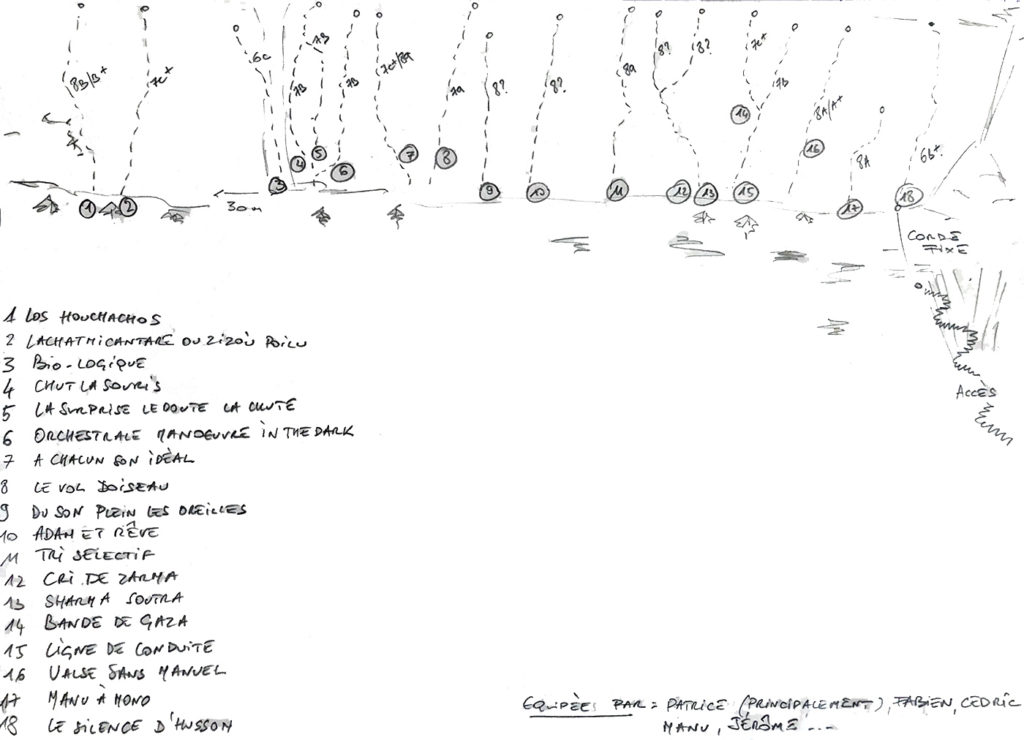 8B/B+
7c+
6c
7B
7B
7B
7c+/8a
7a
8?
8?
8a
8?
8?
7c+
7B
8A/A+
8A
6b+
1
2
3
4
5
6
7
8
9
10
11
12
13
14
15
16
17
18
30m
CORDE
FIXE
ACCÈS
1 LOS HOUCHACHOS
2 LACHATMICANTARE OU ZIZOU POILU
3 BIO-LOGIQUE
4 CHUT LA SOURIS
5 LA SURPRISE LE DOUTE LA CHUTE
6 ORCHESTRALE MANOEUVRE IN THE DARK
7 A CHACUN SON IDÉAL
8 LE VOL DOISEAU
9 DU SON PLEIN LES OREILLES
10 ADAM ET RÊVE
11 TRI SELECTIF
12 CRI DE ZARMA
13 SHARMA SOUTRA
14 BANDE DE GAZA
15 LIGNE DE CONDUITE
16 VALSE SANS MANUEL
17 MANU À MONO
18 LE SILENCE D'HUSSON
EQUIPÈES PAR = PATRICE (PRINCIPALEMENT), FABIEN, CEDRIC
MANU, JÉRÔME ...